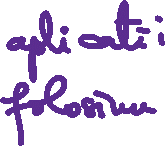 aplicatii
folosim